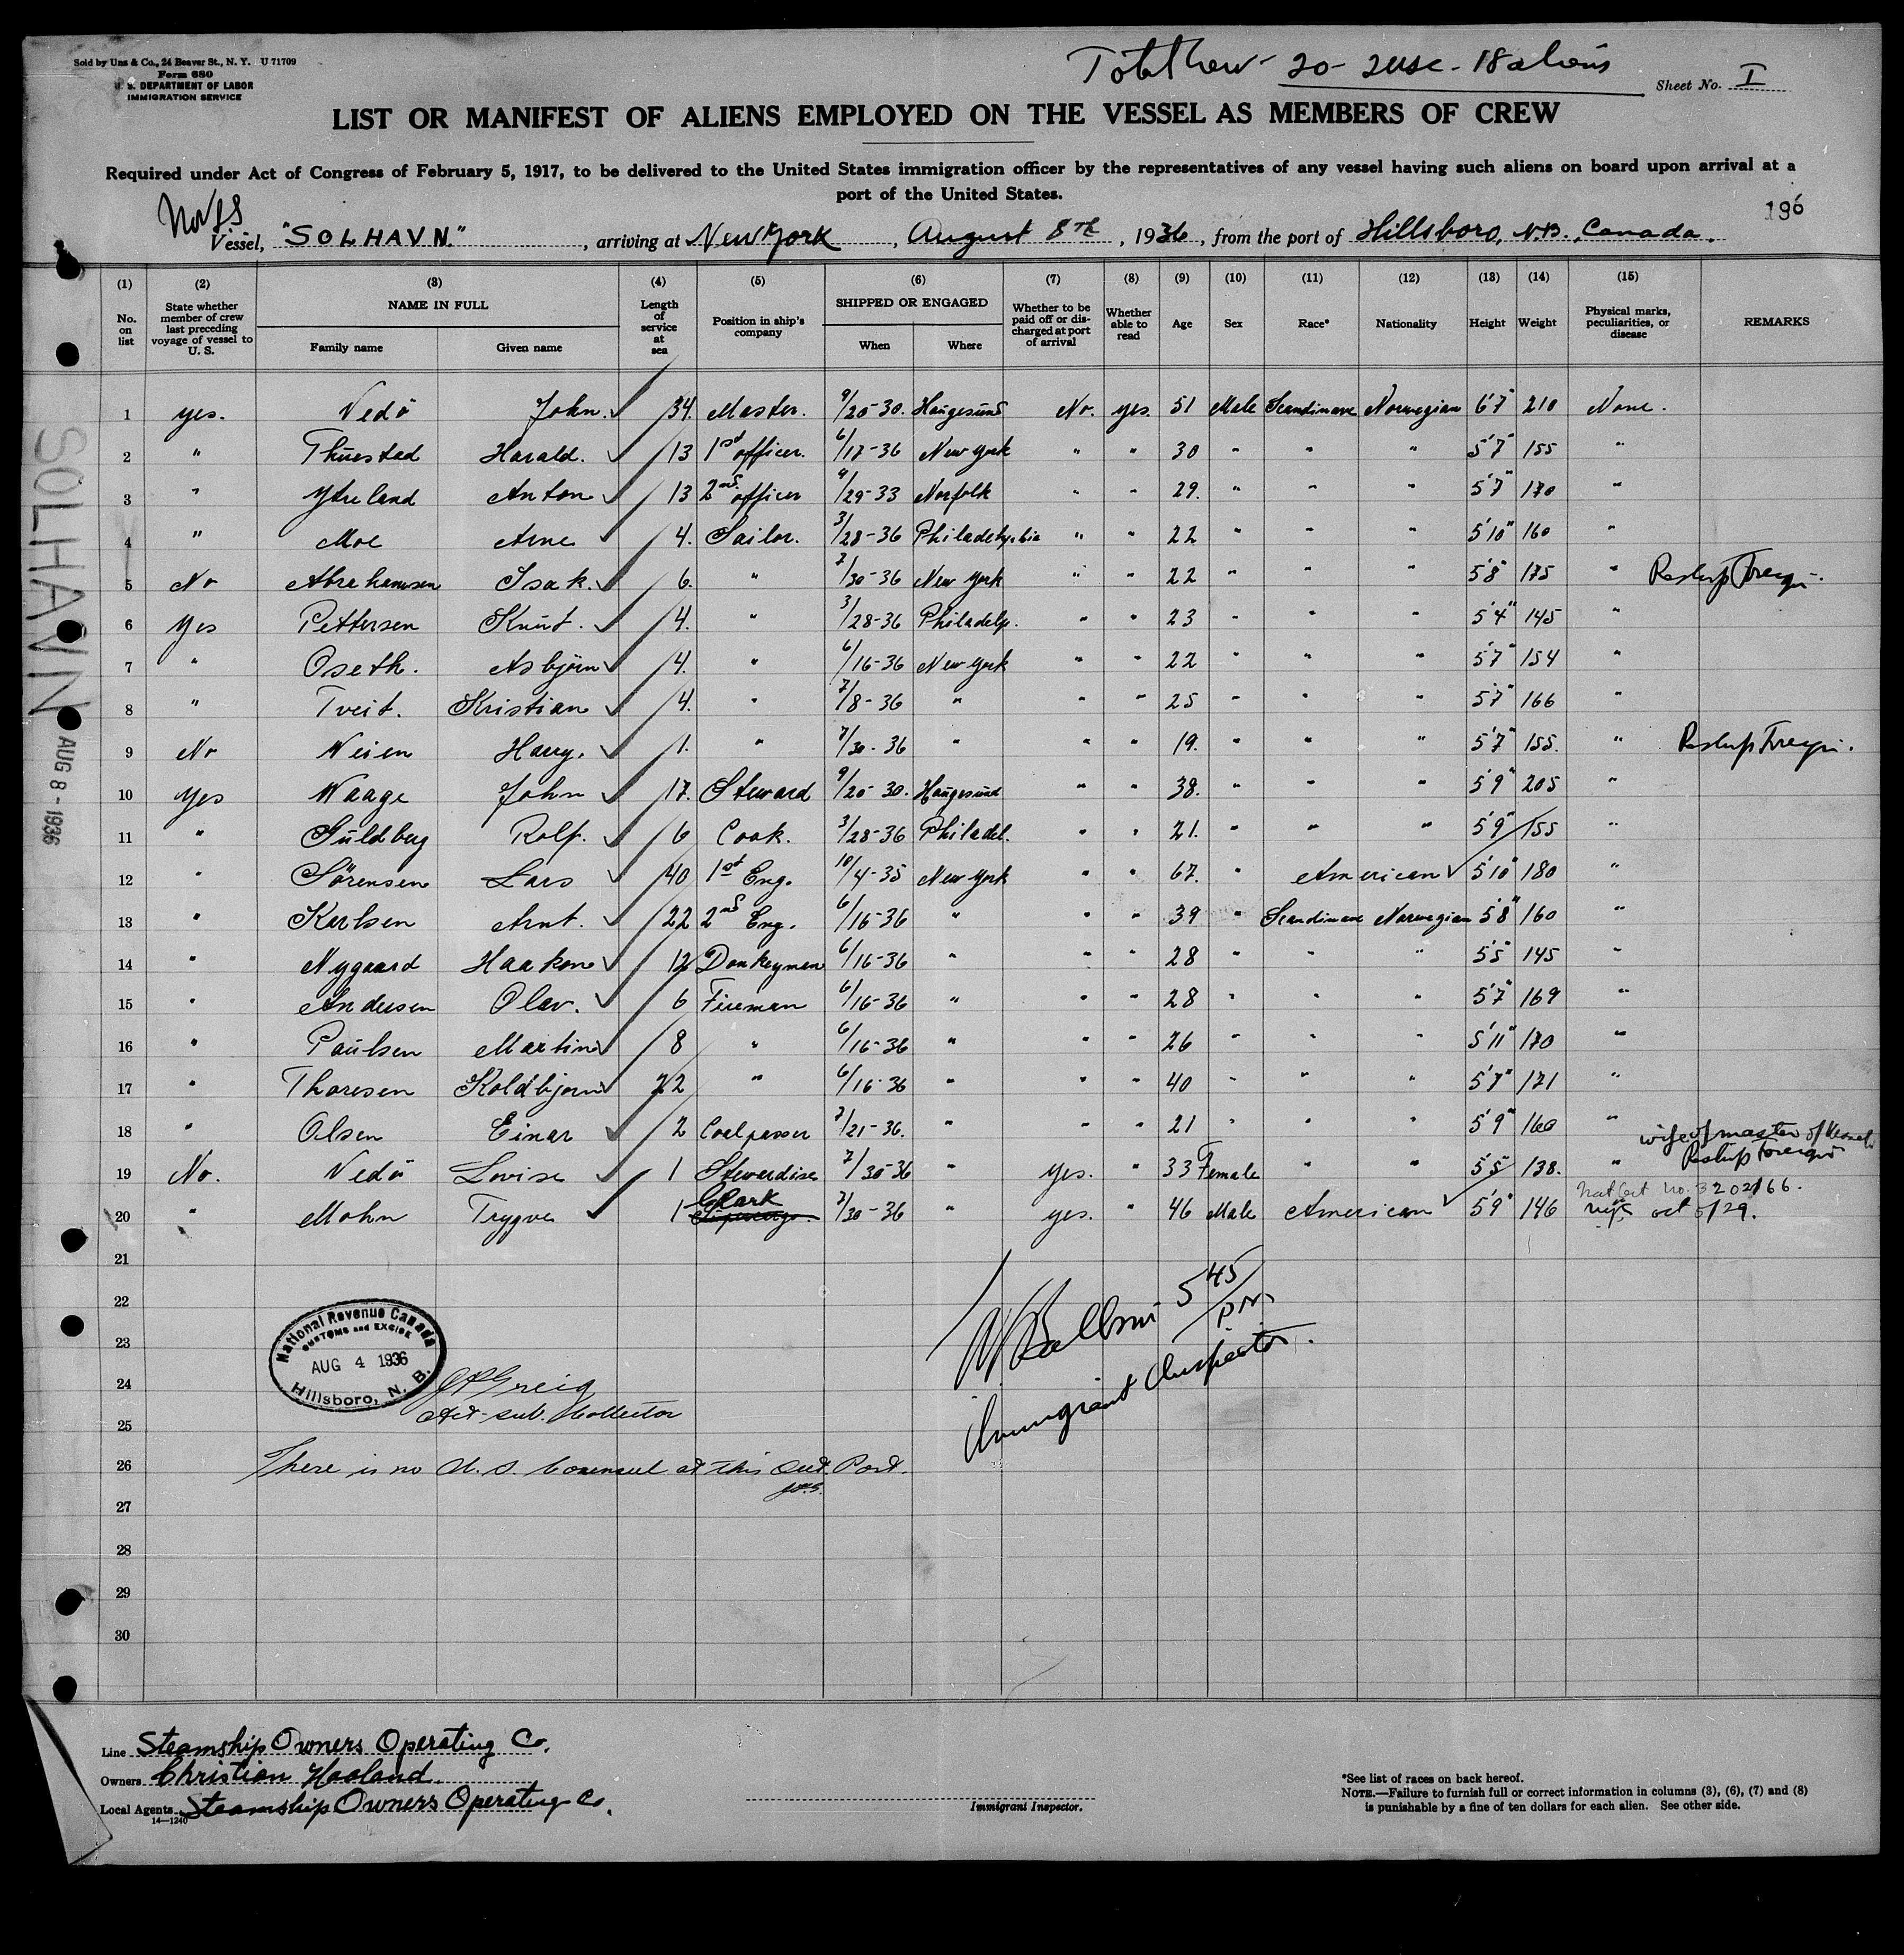 Sold by Unz & Co., 24 Beaver St., N. Y. U 71709
Form 680
U. S. DEPARTMENT OF LABOR
IMMIGRATION SERVICE
Total Crew - 20 - 2 USC - 18 aliens
Sheet No. I
LIST OR MANIFEST OF ALIENS EMPLOYED ON THE VESSEL AS MEMBERS OF CREW
Required under Act of Congress of February 5, 1917, to be delivered to the United States immigration officer by the representatives of any vessel having such aliens on board upon arrival at a
port of the United States.
196
Vessel, "SOLHAVN", arriving at New York, August 8th, 1936, from the port of Hillsboro, N.B., Canada.
(1) (2) (3) (4) (5) (6) (7) (8) (9) (10) (11) (12) (13) (14) (15)
No. on list | State whether member of crew last preceding voyage of vessel to U. S. | NAME IN FULL | Family name | Given name | Length of service at sea | Position in ship's company | SHIPPED OR ENGAGED | When | Where | Whether to be paid off or discharged at port of arrival | Whether able to read | Age | Sex | Race* | Nationality | Height | Weight | Physical marks, peculiarities, or disease | REMARKS
1 yes. Nedö John. 34. Master. 9/20-30. Haugesund No. yes. 51 Male Scandinave Norwegian 6'7" 210 None.
2 " Thuestad Harald. 13 1st officer. 6/17-36 New York " " 30 " " " 5'7" 155 "
3 " Ytreland Anton 13 2nd officer 9/29-33 Norfolk " " 29. " " " 5'7" 170 "
4 " Moe Arne 4. Sailor. 3/28-36 Philadelphia " " 22 " " " 5'10" 160 "
5 No Abrahamsen Isak. 6. " 7/30-36 New York " " 22 " " " 5'8" 175 " Reship Foreign.
6 Yes Pettersen Knut. 4. " 3/28-36 Philadelp. " " 23 " 5'4" 145 "
7 " Oseth. Asbjörn 4. " 6/16-36 New York " " 22 " " " 5'7" 154 "
8 " Tveit. Kristian 4. " 7/8-36 " " " 25 " " " 5'7" 166 "
9 No Neien Harry. 1. " 7/30-36 " " " 19. " " " 5'7" 155. " Reship Foreign.
10 Yes Waage John 17. Steward 9/20-30. Haugesund " " 38. " " " 5'9" 205 "
11 " Guldberg Rolf. 6 Cook. 3/28-36 Philadel. " " 21. " " " 5'9" 155 "
12 " Sörensen Lars 40 1st Eng. 10/4-35 New York " " 67. " American 5'10" 180 "
13 " Karlsen Arnt. 22 2nd Eng. 6/16-36 " " " 39 " Scandinave Norwegian 5'8" 160 "
14 " Nygaard Haakon 12 Donkeyman 6/16-36 " " " 28 " " " 5'5" 145 "
15 " Andersen Olav. 6 Fireman 6/16-36 " " " 28 " " " 5'7" 169 "
16 " Paulsen Martin 8 " 6/16-36 " " " 26 " " " 5'11" 170 "
17 " Thoresen Koldbjorn 22 " 6/16-36 " " " 40 " " " 5'7" 171 "
18 " Olsen Einar 2 Coalpasser 7/21-36. " " " 21 " " " 5'9" 160 "
wife of master of Vessel
19 No. Nedö Lovise 1 Stewardise 7/30-36 " yes. " 33 Female " " 5'5" 138. " Reship Foreign
Nat Cert no. 3202166.
20 " Mohn Trygve 1 Clark 7/30-36 " yes. " 46 Male American 5'9" 146 oct 8/29.
21
22
23
24
25
26
27
28
29
30
SOLHAVN
AUG 8 - 1936
National Revenue Canada
CUSTOMS and EXCISE
AUG 4 1936
Hillsboro, N. B.
Greig
Act-sub. Collector
There is no U. S. Counsul at this Out Port.
5 45/P.M.
Immigrant Inspector.
Line Steamship Owners Operating Co.
Owners Christian Haaland
Local Agents Steamship Owners Operating Co.
14—1240
Immigrant Inspector.
*See list of races on back hereof.
NOTE.—Failure to furnish full or correct information in columns (3), (6), (7) and (8)
is punishable by a fine of ten dollars for each alien. See other side.